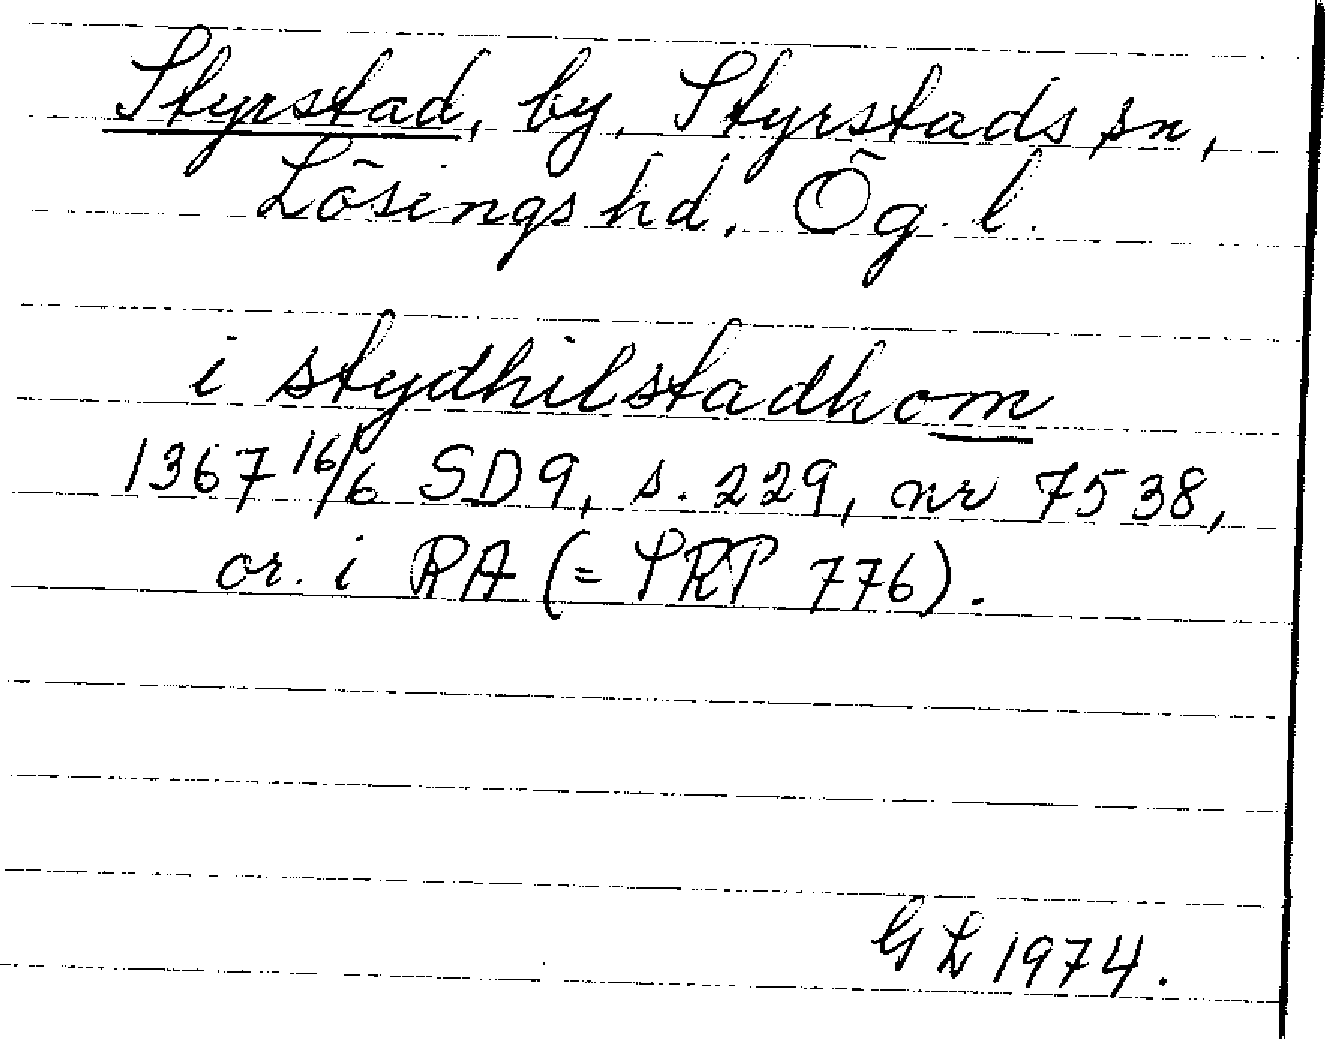 Styrstad, by, Styrstads sn,
Lösings hd, Ög. l.
i stydhilstadhom
1367 16/6 SD9, s. 229, nr 7538,
or. i RA (= SRP 776).
GL 1974.